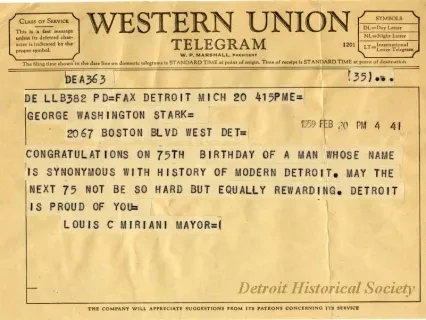 CLASS OF SERVICE
This is a fast message unless its deferred character is indicated by the proper symbol.
WESTERN UNION
TELEGRAM
W. P. MARSHALL, PRESIDENT
1201
SYMBOLS
DL=Day Letter
NL=Night Letter
LT=International Letter Telegram
The filing time shown in the date line on domestic telegrams is STANDARD TIME at point of origin. Time of receipt is STANDARD TIME at point of destination
DEA363
(35)..
DE LLB382 PD=FAX DETROIT MICH 20 415PME=
GEORGE WASHINGTON STARK=
1959 FEB 20 PM 4 41
2067 BOSTON BLVD WEST DET=
CONGRATULATIONS ON 75TH BIRTHDAY OF A MAN WHOSE NAME
IS SYNONYMOUS WITH HISTORY OF MODERN DETROIT. MAY THE
NEXT 75 NOT BE SO HARD BUT EQUALLY REWARDING. DETROIT
IS PROUD OF YOU=
LOUIS C MIRIANI MAYOR=(
Detroit Historical Society
THE COMPANY WILL APPRECIATE SUGGESTIONS FROM ITS PATRONS CONCERNING ITS SERVICE